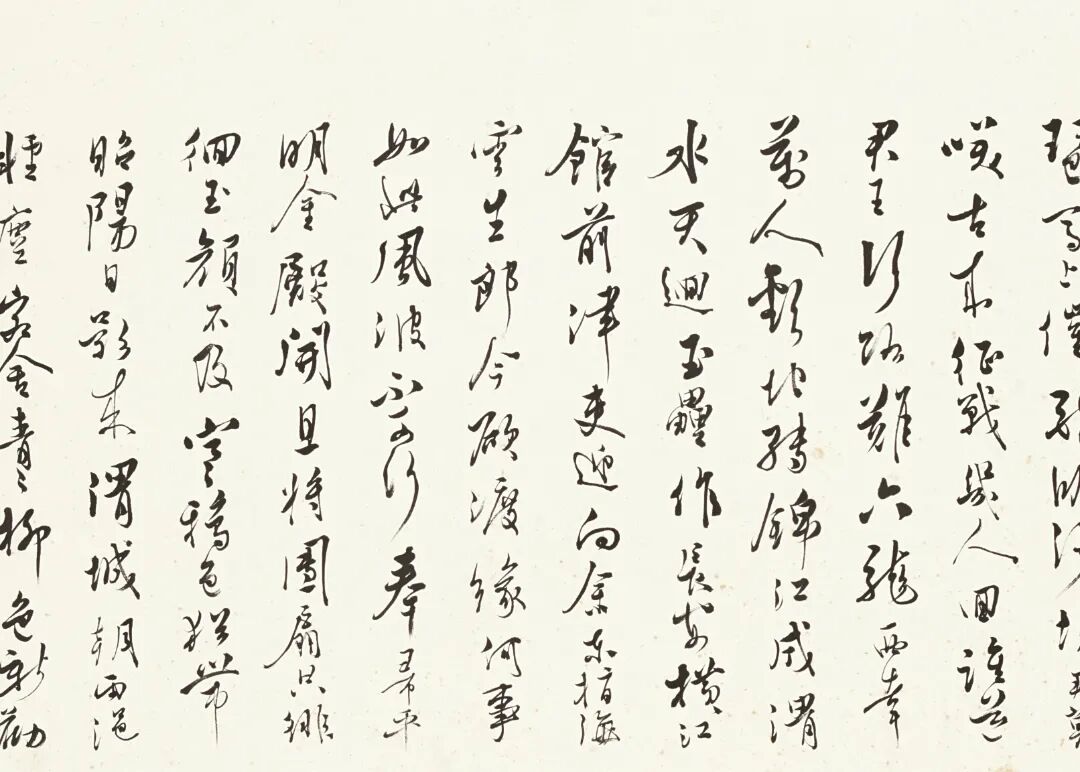 琶馬上催醉卧沙場君莫
咲古来征戰幾人回誰道
君王行路難六龍西幸
萬人歡地轉錦江成渭
水天迴玉壘作長安橫江
館前津吏迎向余東指海
雲生郎今欲渡緣何事
如此風波不可行奉帚平
明金殿開且將團扇共徘
徊玉顏不及寒鴉色猶帶
昭陽日影来渭城朝雨浥
輕塵客舍青〻柳色新勸